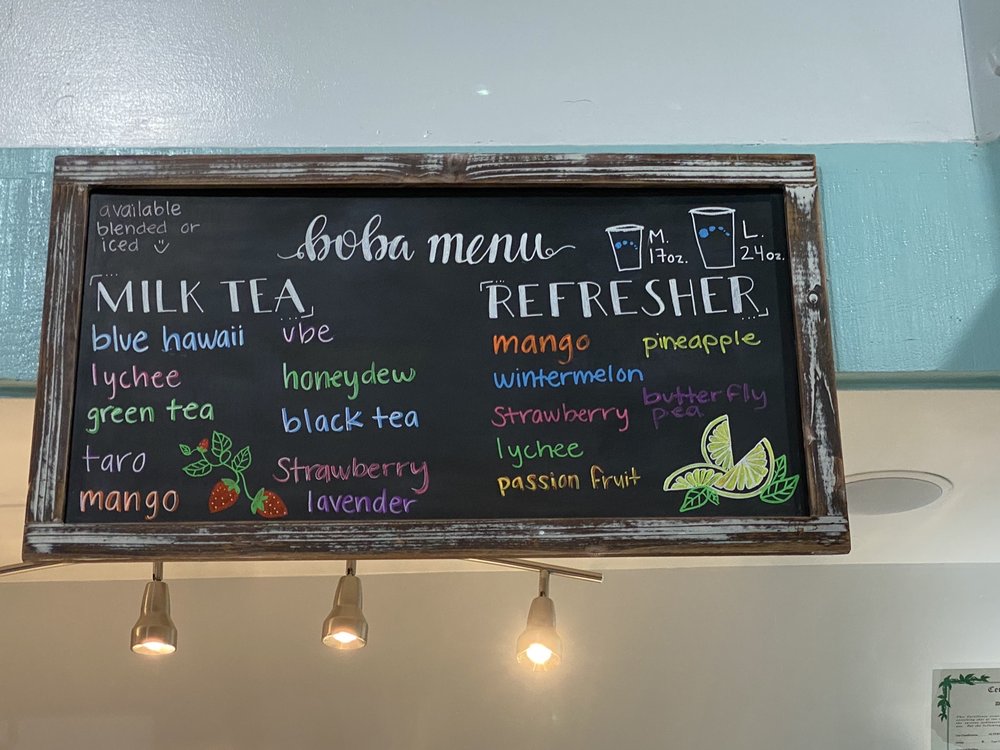 available
blended or
iced
boba menu
M.
17oz.
L.
24oz.
MILK TEA
blue hawaii
lychee
green tea
taro
mango
vbe
honeydew
black tea
Strawberry
lavender
REFRESHER
mango
wintermelon
Strawberry
lychee
passion fruit
pineapple
butterfly
pea